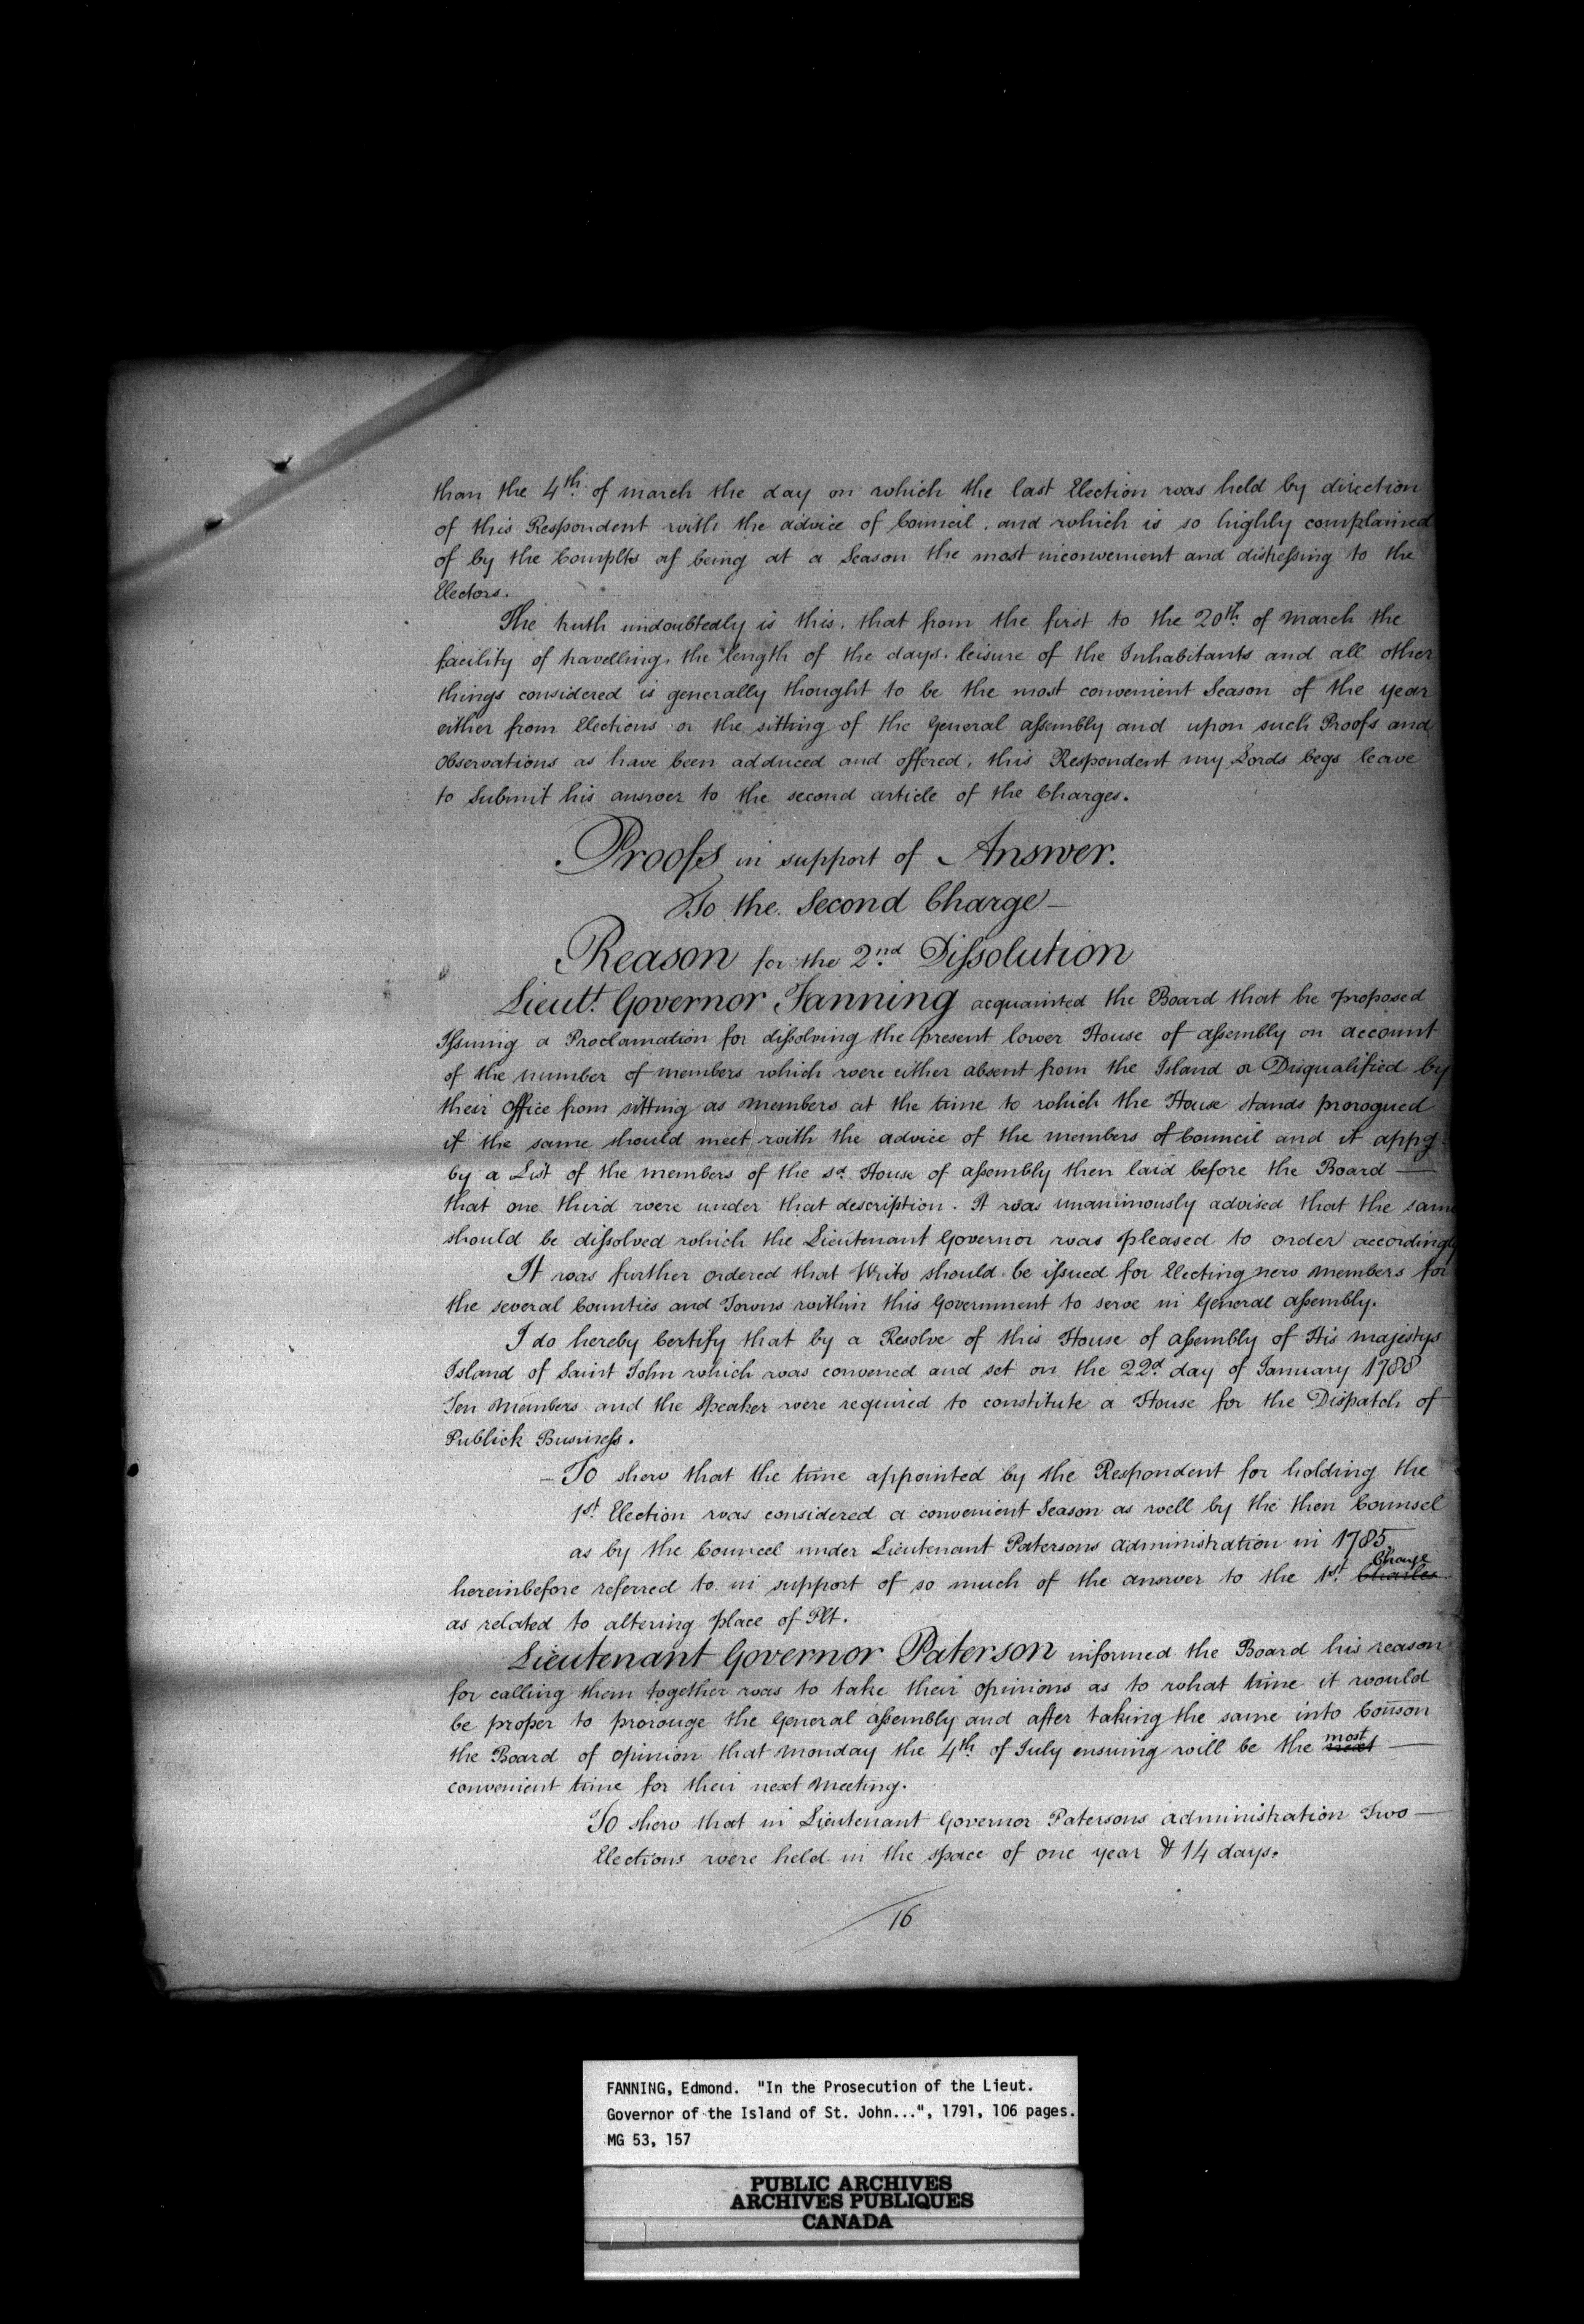 than the 4th. of march the day on which the last Election was held by direction
of this Respondent with the advice of Council, and which is so highly complained
of by the Complts as being at a Season the most inconvenient and distressing to the
Electors.
The truth undoubtedly is this, that from the first to the 20th. of March the
facility of travelling, the length of the days, leisure of the Inhabitants and all other
things considered is generally thought to be the most convenient Season of the year
either from Elections or the sitting of the General assembly and upon such Proofs and
Observations as have been adduced and offered, this Respondent my Lords begs leave
to Submit his answer to the second article of the Charges.
Proofs in support of Answer.
To the Second Charge—
Reason for the 2.nd Dissolution
Lieutt. Governor Fanning acquainted the Board that he proposed
Issuing a Proclamation for dissolving the present lower House of assembly on account
of the number of members which were either absent from the Island or Disqualified by
their Office from sitting as Members at the time to which the House stands prorogued
if the same should meet, with the advice of the members of Council and it appg.
by a List of the members of the sd. House of assembly then laid before the Board —
that one third were under that description. It was unanimously advised that the same
should be dissolved which the Lieutenant Governor was pleased to order accordingly
It was further ordered that Writs should be issued for Electing new Members for
the several Counties and Towns within this Government to serve in General assembly.
I do hereby Certify that by a Resolve of this House of assembly of His majestys
Island of Saint John which was convened and set on the 22d. day of January 1788
Ten Members and the Speaker were required to constitute a House for the Dispatch of
Publick Business.
— To shew that the time appointed by the Respondent for holding the
1st. Election was considered a convenient Season as well by the then Counsel
as by the Councel under Lieutenant Patersons administration in 1785
hereinbefore referred to in support of so much of the answer to the 1st. Charles Charge
as related to altering place of Plt.
Lieutenant Governor Paterson informed the Board his reason
for calling them together was to take their opinions as to what time it would
be proper to prorouge the General assembly and after taking the same into Conson
the Board of opinion that Monday the 4th. of July ensuing will be the next most —
convenient time for their next Meeting.
To shew that in Lieutenant Governor Patersons administration Two —
Elections were held in the space of one year & 14 days.
16
FANNING, Edmond. "In the Prosecution of the Lieut.
Governor of the Island of St. John...", 1791, 106 pages.
MG 53, 157
PUBLIC ARCHIVES
ARCHIVES PUBLIQUES
CANADA